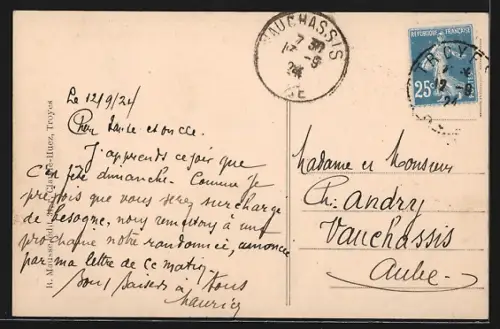 Le 12/9/24
Cher tante et oncle.
J'apprends ce soir que
c'en fête dimanche. Comme je
prévois que vous serez surchargé
de besogne, nous remettons à une
prochaine notre randonnée, annoncée
par ma lettre de ce matin
Bons baisers à tous
Maurice
VAUCHASSIS
7 30
17 -9
24
RÉPUBLIQUE FRANÇAISE
25c
TROYES
12 -9
24
Madame et Monsieur
Ch. Andry
Vauchassis
Aube.
Huez, Troyes